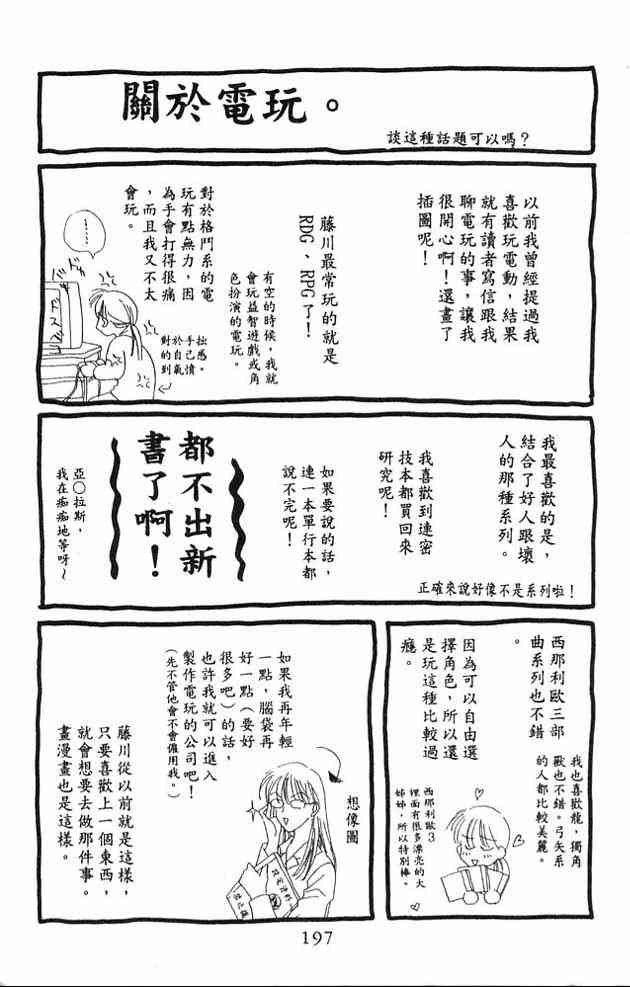 關於電玩。
談這種話題可以嗎？
以前我曾經提過我
喜歡玩電動，結果
就有讀者寫信跟我
聊電玩的事，讓我
很開心啊！還畫了
插圖呢！
藤川最常玩的就是
RDG、RPG了！
有空的時候，我就
會玩益智遊戲或角
色扮演的電玩。
對於格鬥系的電
玩有點無力，因
為手會打得很痛
，而且我又不太
會玩。
拙感。
手己憤
於自氣
對的到
……
我最喜歡的是，
結合了好人跟壞
人的那種系列。
正確來說好像不是系列啦！
我喜歡到連密
技本都買回來
研究呢！
如果要說的話，
連一本單行本都
說不完呢！
都不出新
書了啊！
亞○拉斯，
我在痴痴地等呀～
西那利歐三部
曲系列也不錯
。
我也喜歡龍，獨角
獸也不錯。弓矢系
的人都比較美麗。
因為可以自由選
擇角色，所以還
是玩這種比較過
癮。
西那利歐3
裡面有很多漂亮的大
姊姊，所以特別棒。
如果我再年輕
一點，腦袋再
好一點（要好
很多吧）的話，
也許我就可以進入
製作電玩的公司吧！
（先不管他會不會僱用我。）
想像圖
設定資料
藤川從以前就是這樣，
只要喜歡上一個東西，
就會想要去做那件事。
畫漫畫也是這樣。
197